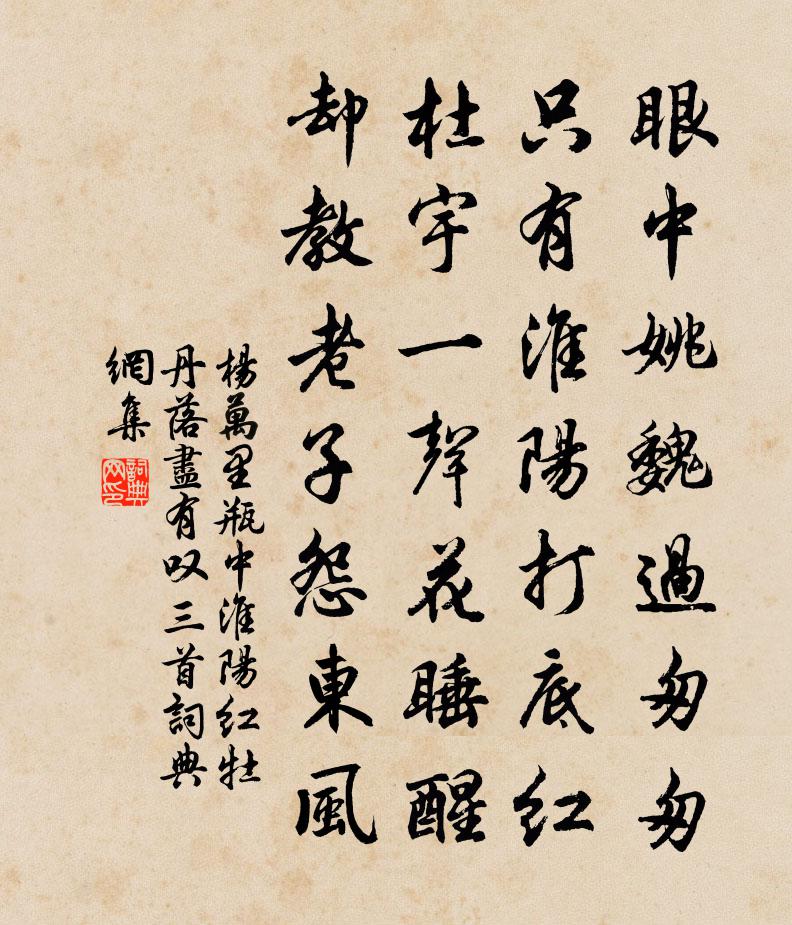 眼中姚魏過匆匆
只有淮陽打底紅
杜宇一聲花睡醒
却教老子怨東風
楊萬里瓶中淮陽红牡
丹落盡有叹三首詞典
網集
詞典网印